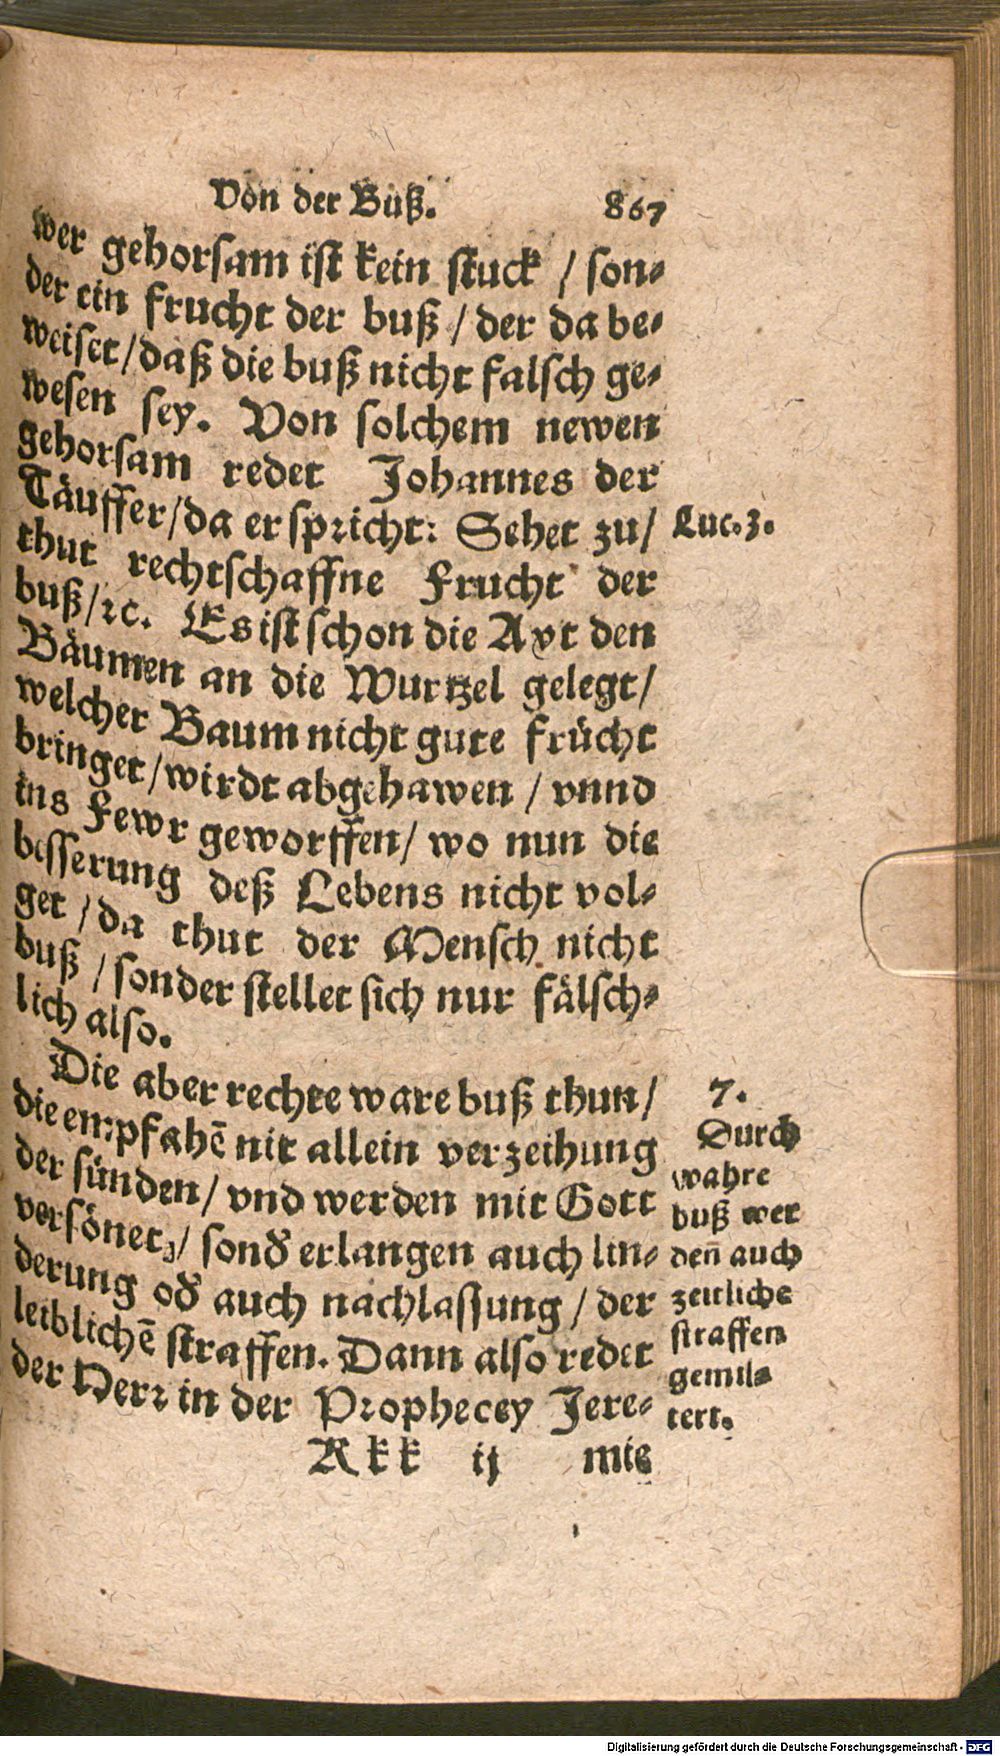 Von der Buß. 867
wer gehorsam ist kein stuck / son-
der ein frucht der buß / der da be-
weiset / daß die buß nicht falsch ge-
wesen sey. Von solchem newen
gehorsam redet Johannes der
Täuffer / da er spricht: Sehet zu /
Luc. 3.
thut rechtschaffne Frucht der
buß / ꝛc. Es ist schon die Axt den
Bäumen an die Wurtzel gelegt /
welcher Baum nicht gute frücht
bringet / wirdt abgehawen / vnnd
ins Fewr geworffen / wo nun die
besserung deß Lebens nicht vol-
get / da thut der Mensch nicht
buß / sonder stellet sich nur fälsch-
lich also.
Die aber rechte ware buß thun /
die empfahẽ nit allein verzeihung
der sünden / vnd werden mit Gott
versönet / sonď erlangen auch lin-
derung oď auch nachlassung / der
leiblichẽ straffen. Dann also redet
der Herr in der Prophecey Jere-
7.
Durch
wahre
buß wer
den̄ auch
zeitliche
straffen
gemil-
tert.
Kkk ij mie
Digitalisierung gefördert durch die Deutsche Forschungsgemeinschaft - DFG